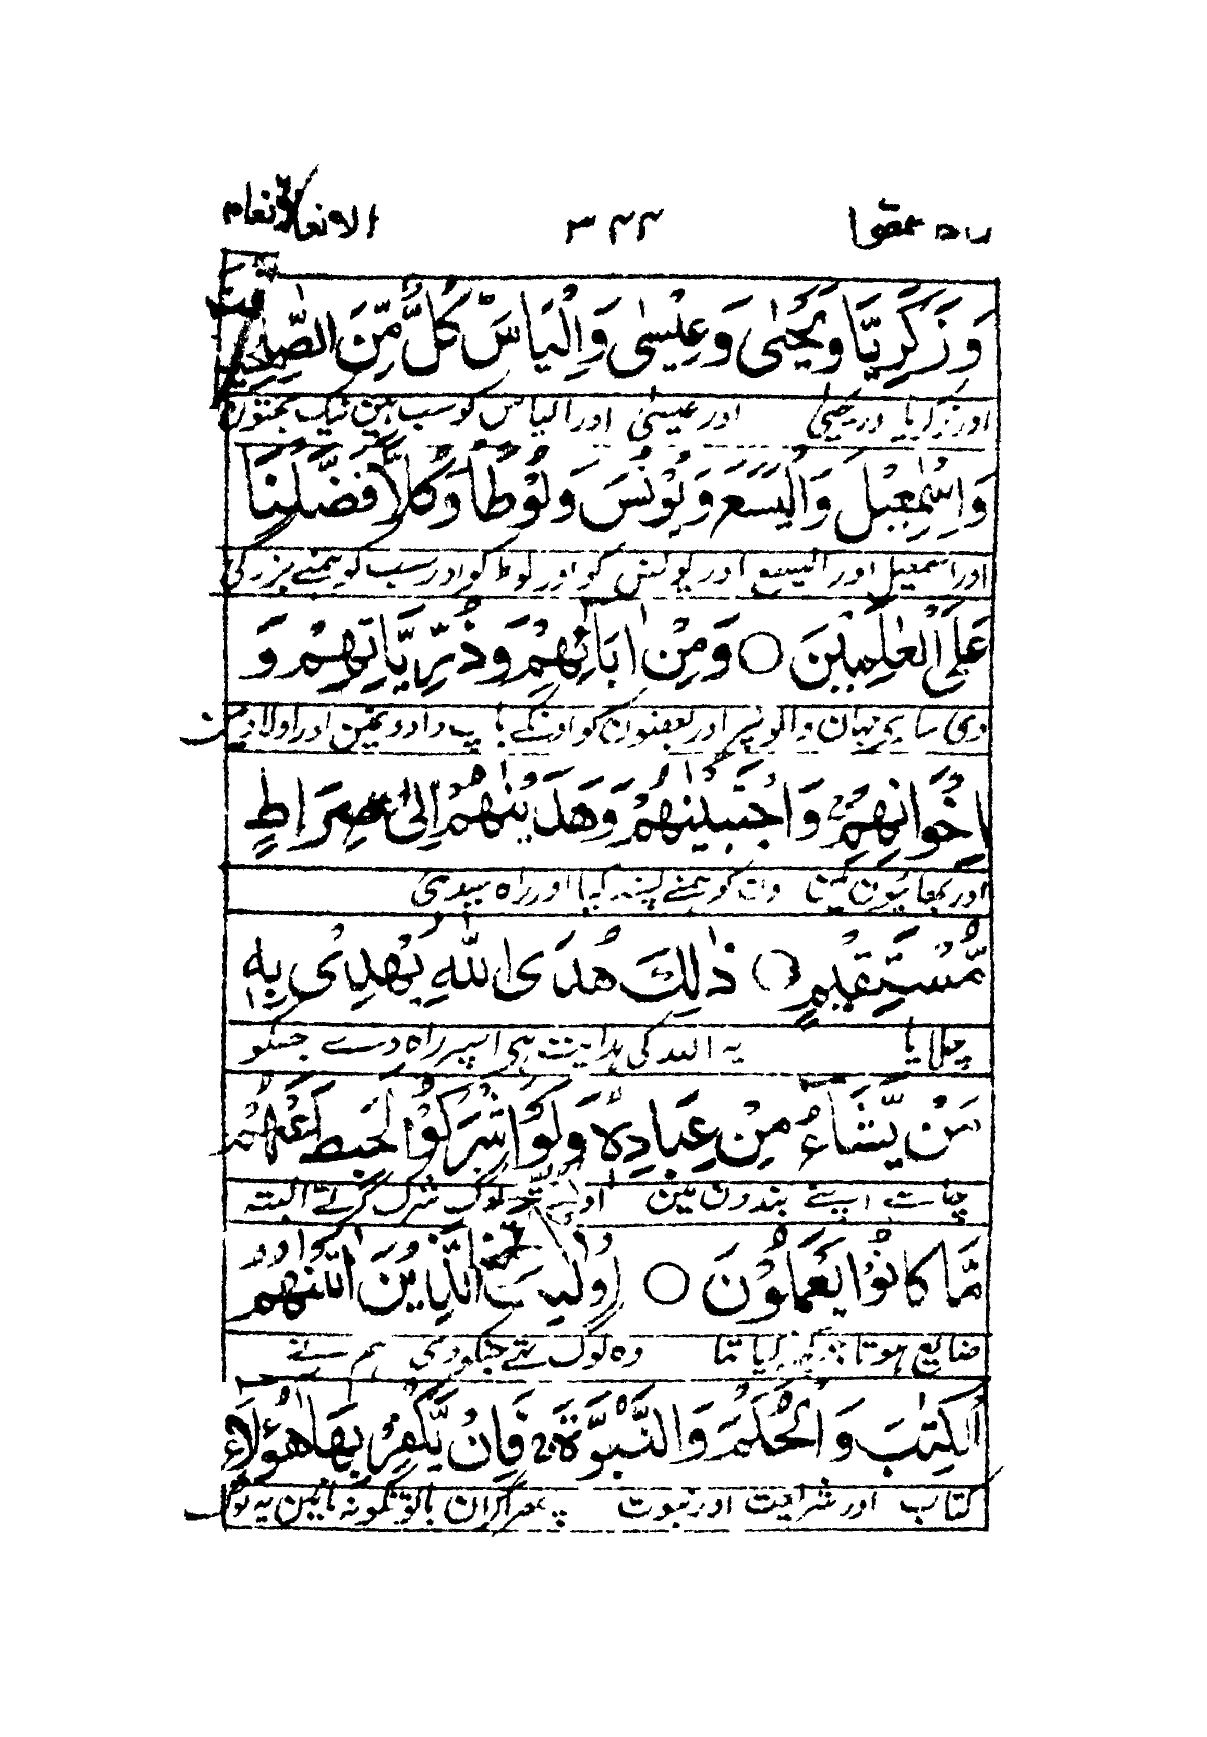 الانعام ٣٤٤
وَزَكَرِيَّا وَيَحْيٰى وَعِيْسٰى وَاِلْيَاسَ ؕ كُلٌّ مِّنَ الصّٰلِحِيْنَ
اور زکریا اور یحییٰ اور عیسیٰ اور الیاس کو سب ہین نیک بختون
وَاِسْمٰعِيْلَ وَالْيَسَعَ وَيُوْنُسَ وَلُوْطًا ؕ وَكُلًّا فَضَّلْنَا
اور اسمعیل اور الیسع اور یونس کو اور لوط کو اور سب کو ہمنے بزرگی
عَلَى الْعٰلَمِيْنَ ○ وَمِنْ اٰبَآئِهِمْ وَذُرِّيّٰتِهِمْ وَ
دی ساری جہان والونپر اور بعضون کو اونکے باپ دادو نمین اور اولاد مین
اِخْوَانِهِمْ ۚ وَاجْتَبَيْنٰهُمْ وَهَدَيْنٰهُمْ اِلٰى صِرَاطٍ
اور بھائیون مین ون کو ہمنے پسند کیا اور راہ سیدھی
مُّسْتَقِيْمٍ ○ ذٰلِكَ هُدَى اللّٰهِ يَهْدِيْ بِهٖ
چلایا یہ اللہ کی ہدایت ہی اسپر راہ دے جسکو
مَنْ يَّشَآءُ مِنْ عِبَادِهٖ ؕ وَلَوْ اَشْرَكُوْا لَحَبِطَ عَنْهُمْ
چاہے اپنے بندون مین لوگ شرک کرتے البتہ
مَّا كَانُوْا يَعْمَلُوْنَ ○ اُولٰٓئِكَ الَّذِيْنَ اٰتَيْنٰهُمُ
ضایع ہوتا کیا تھا وہ لوگ تھے جنکو دی ہم نے
الْكِتٰبَ وَالْحُكْمَ وَالنُّبُوَّةَ ۚ فَاِنْ يَّكْفُرْ بِهَا هٰٓؤُلَآءِ
کتاب اور شریعت اور نبوت پھر اگر ان باتونکو نہ مانین یہ لوگ